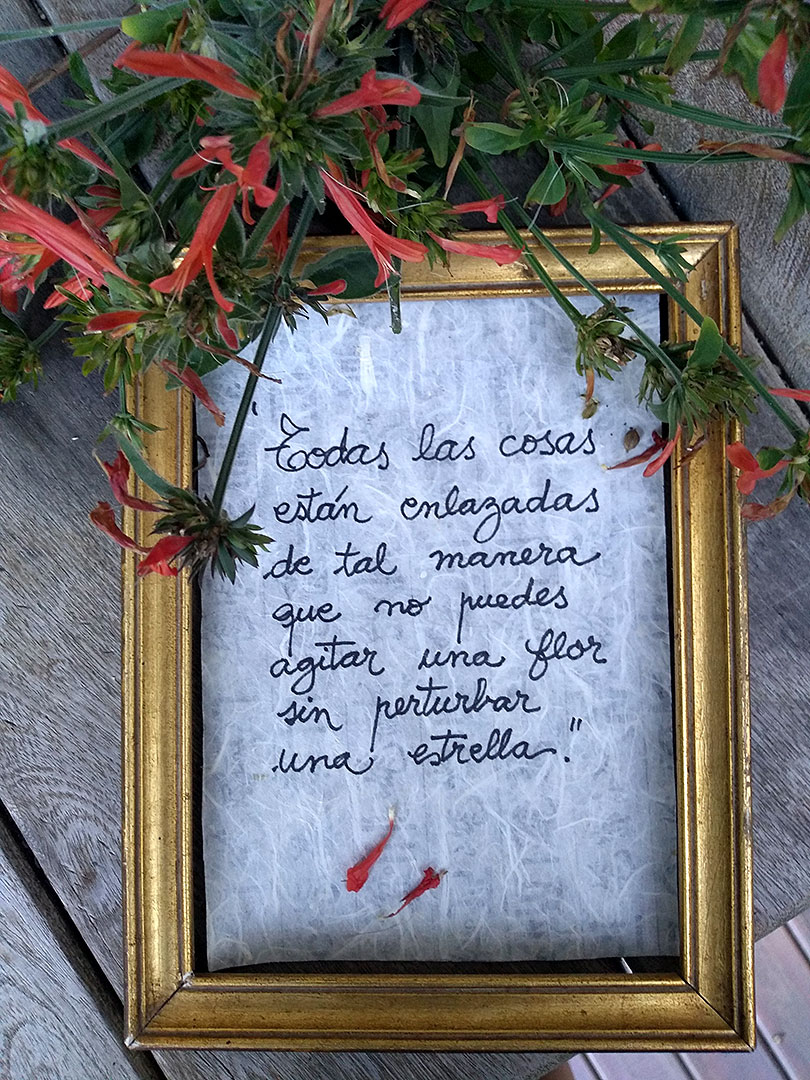 "Todas las cosas
están enlazadas
de tal manera
que no puedes
agitar una flor
sin perturbar
una estrella."